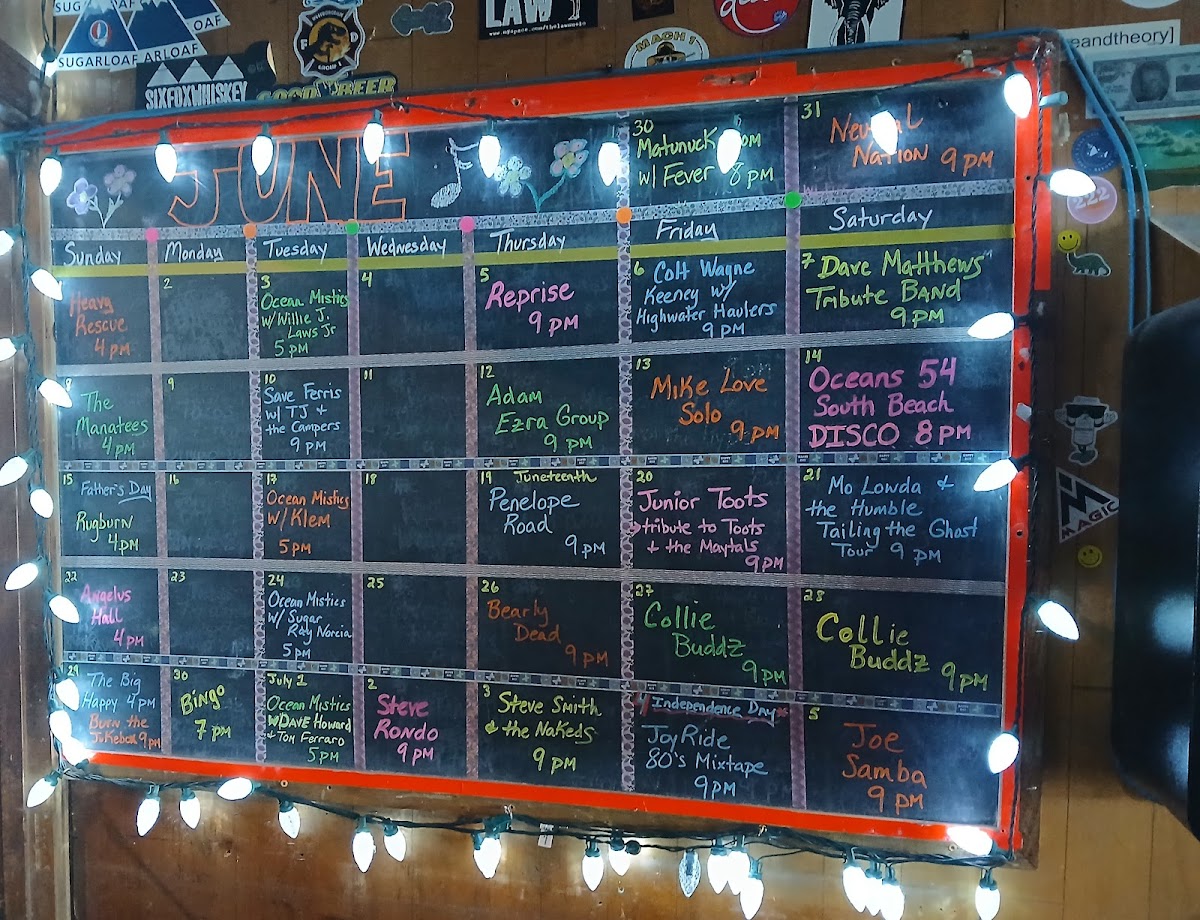 SUG
OAF
SUGARLOAF
ARLOAF
SIXFOXWHISKEY
GOOD BEER
LAW
MACH 1
eandtheory]
222
MAGIC
JUNE
30
Matunuck
w/ Fever 8 PM
31
Neutral
Nation 9 PM
Sunday
Monday
Tuesday
Wednesday
Thursday
Friday
Saturday
Heavy
Rescue
4 PM
2
3
Ocean Mistics
w/ Willie J.
Laws Jr
5 PM
4
5
Reprise
9 PM
6 Colt Wayne
Keeney w/
Highwater Haulers
9 PM
7 Dave Matthews
Tribute BAND
9 PM
8
The
Manatees
4 PM
9
10
Save Ferris
w/ TJ +
the Campers
9 PM
11
12
Adam
Ezra Group
9 PM
13
Mike Love
Solo
9 PM
14
Oceans 54
South Beach
DISCO 8 PM
15
Father's Day
Rugburn
4 PM
16
17
Ocean Mistics
w/ Klem
5 PM
18
19 Juneteenth
Penelope
Road
9 PM
20
Junior Toots
tribute to Toots
+ the Maytals
9 PM
21
Mo Lowda &
the Humble
Tailing the Ghost
Tour 9 PM
22
Angelus
Hall
4 PM
23
24
Ocean Mistics
w/ Sugar
Ray Norcia
5 PM
25
26
Bearly
Dead
9 PM
27
Collie
Buddz
9 PM
28
Collie
Buddz
9 PM
29
The Big
Happy 4 PM
Burn the
Jukebox 9 PM
30
Bingo
7 PM
July 1
Ocean Mistics
w/ Dave Howard
+ Tom Ferraro
5 PM
2
Steve
Rondo
9 PM
3
Steve Smith
& the Nakeds
9 PM
4 Independence Day
JoyRide
80's Mixtape
9 PM
5
Joe
Samba
9 PM